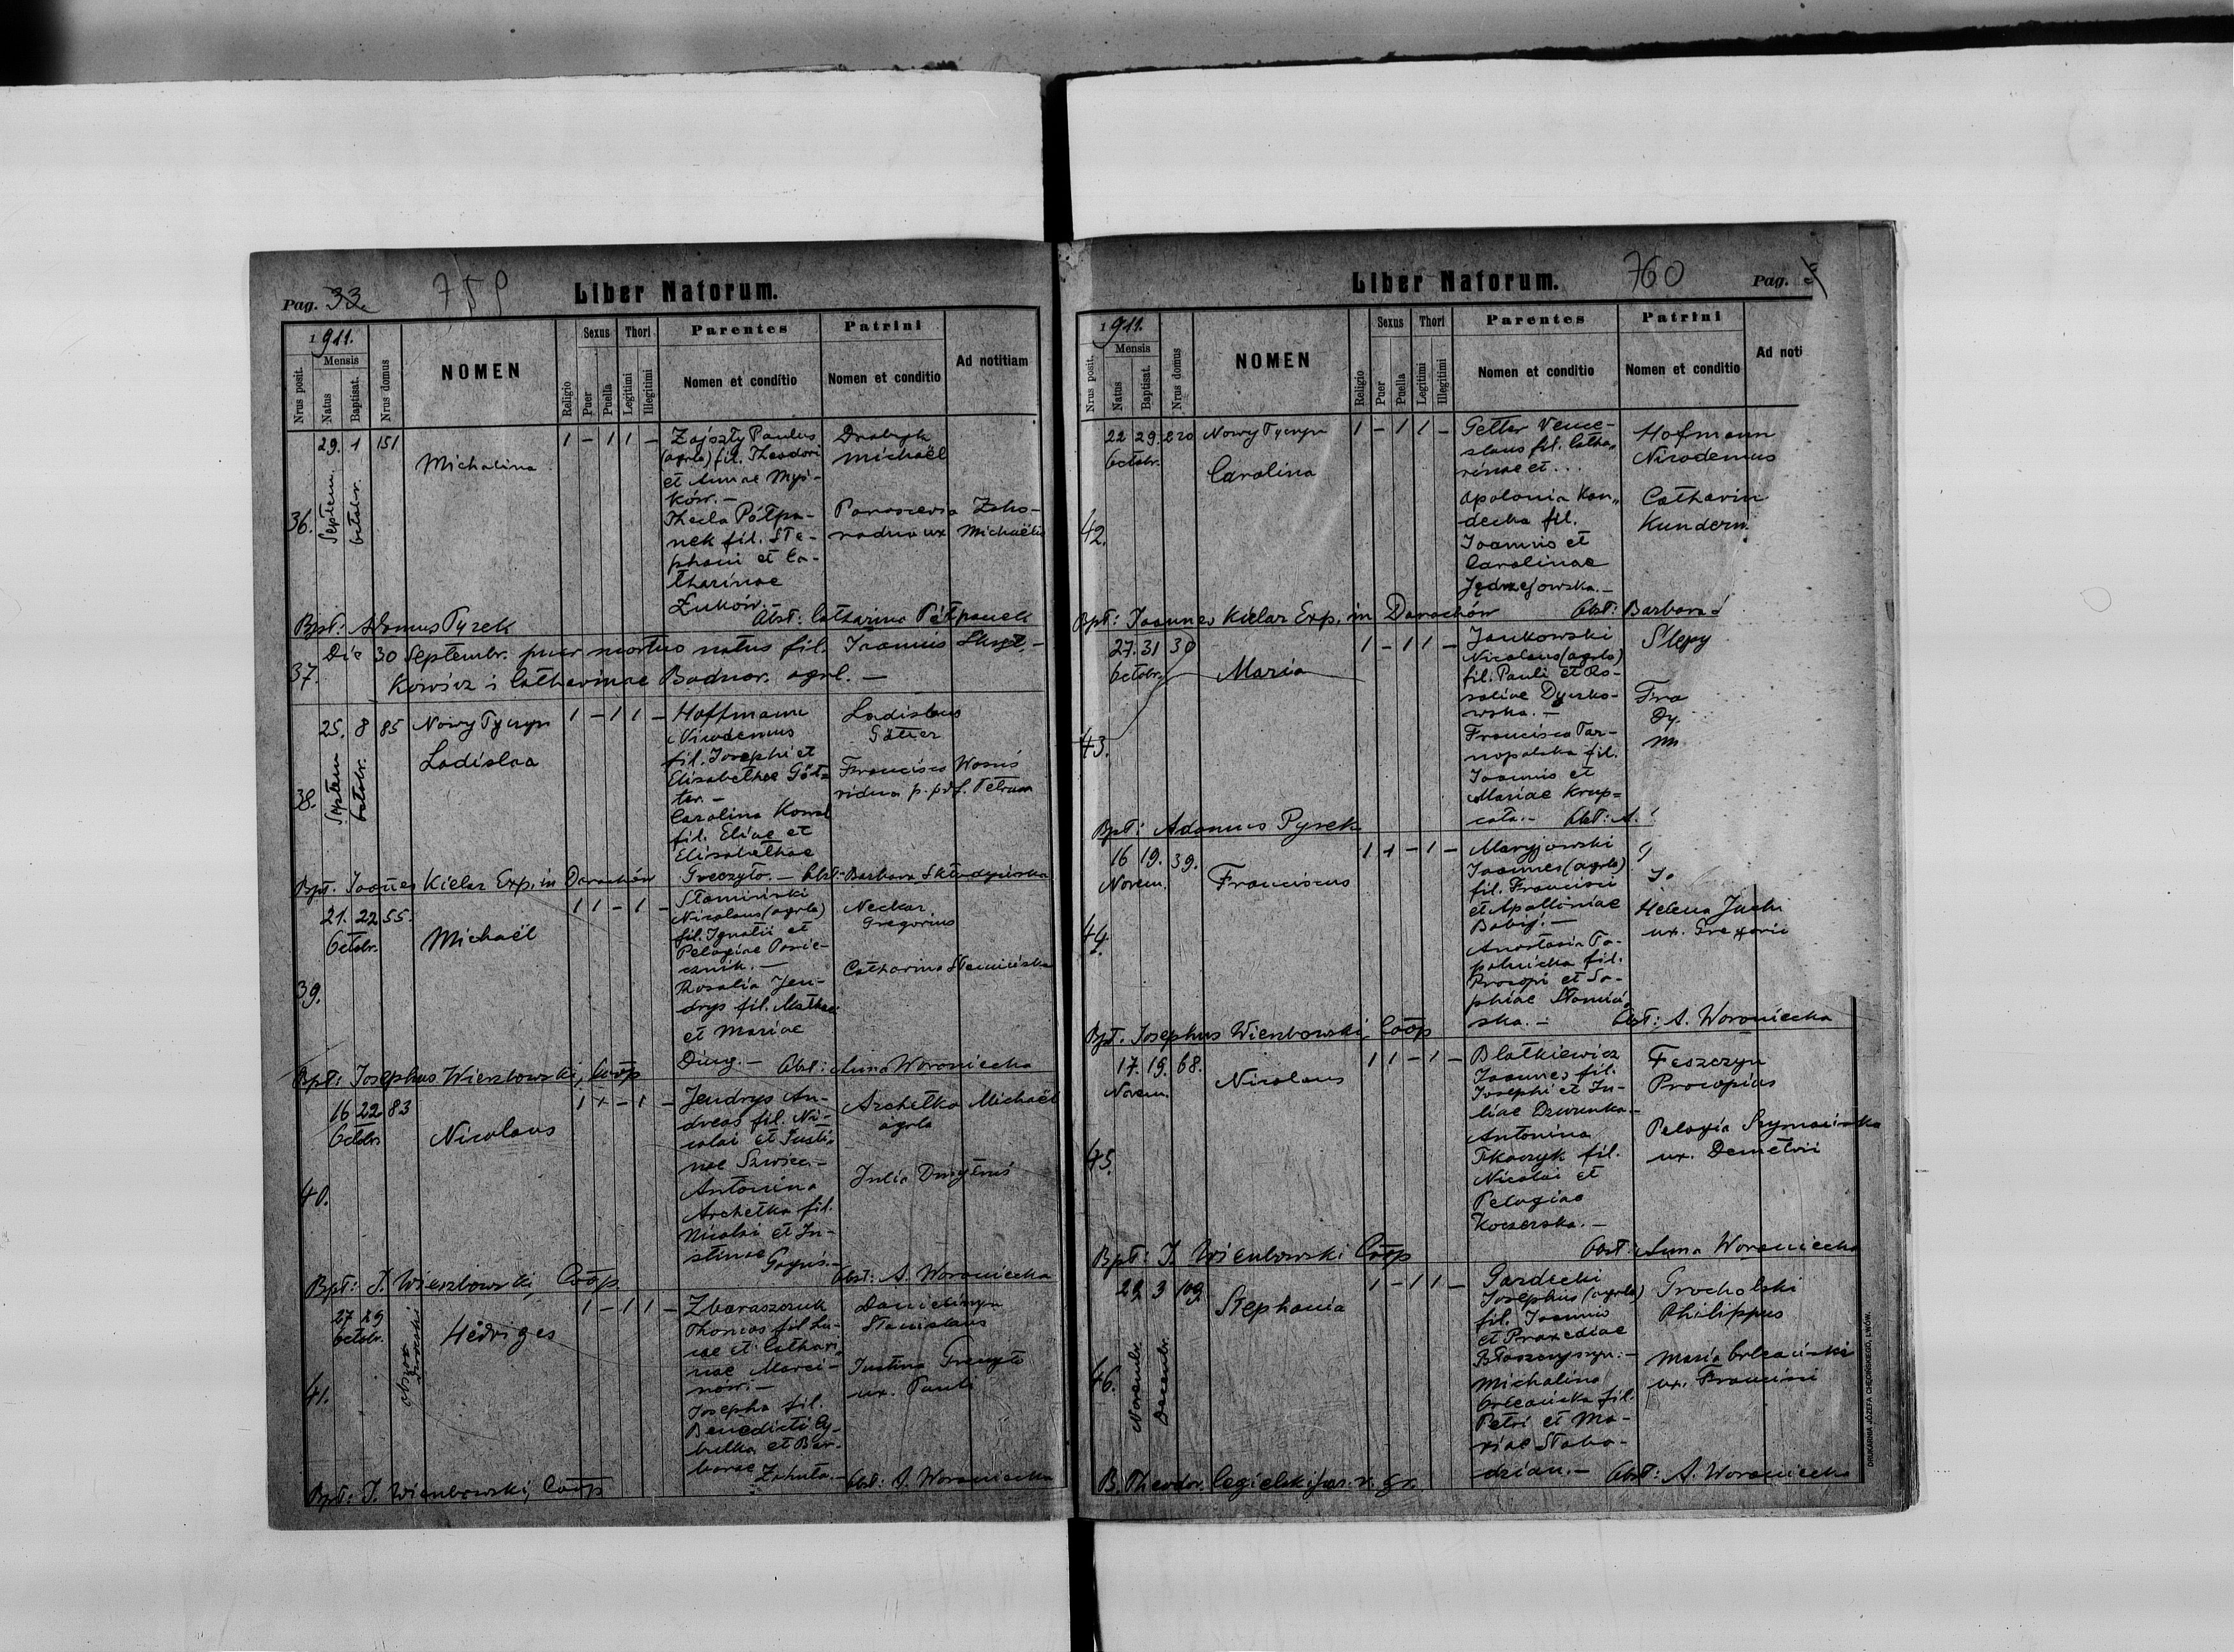 Pag. 33.
759
Liber Natorum.
1911.
Nrus posit.
Mensis
Natus
Baptisat.
Nrus domus
NOMEN
Religio
Sexus
Puer
Puella
Thori
Legitimi
Illegitimi
Parentes
Nomen et conditio
Patrini
Nomen et conditio
Ad notitiam
36.
29. 1 151
Septem. Octobr.
Michalina
1 – 1 1 –
Zajszły Paulus
(agrla) fil. Theodori
et Annae Myś-
ków. –
Thecla Półpa-
nek fil. Ste-
phani et Ca-
tharinae
Żuków. –
Drabyk
Michaël
Parascevia Zaho-
rodna ux Michaëlis
Bpt: Adamus Pyrek
Obst: Catharina Półpanek
37.
Die 30 Septembr. puer mortuo natus fil. Joannis
Catharinae Bodnar. agrl. –
38.
25. 8 85
Septem Octobr.
Nowy Tyczyn
Ladislaa
1 – 1 1 –
Hoffmann
Nicodemus
fil. Josephi et
Elisabethae Göt-
ter. –
Carolina Kowal
fil. Eliae et
Elisabethae
Greczyło. –
Ladislaus
Götter
Francisca Woźns
vidua p. def. Petrum
Bpt. Joañes Kielar Exp. in Darachów
Obst: Barbara Składzińska
39.
21. 22 55.
Octobr.
Michaël
1 1 – 1 –
Słamiński
Nicolaus (agrla)
fil. Ignatii et
Pelagiae Pasie-
cznik. –
Rosalia Jen-
drys fil. Mathaei
et Mariae
Ding. –
Neckar
Gregorius
Catharina Słamińska
Bpt: Josephus Wierzbowski, Coop
Obst: Anna Woroniecka
40.
16 22 83
Octobr
Nicolaus
1 1 – 1 –
Jendrys An-
dreas fil. Ni-
colai et Justi-
nae Szwiec. –
Antonina
Archetka fil.
Nicolai et Ju-
stinae
Goguś. –
Archetko Michaël
agrla
Julia Dmytruś
Bpt: J. Wierzbowski, Coop
Obst: A. Woroniecka
41.
27 29
Octobr.
Hedviges
1 – 1 1 –
Zbaraszczuk
Thomas fil. Lu-
cae et Cathari-
nae Marci-
nów. –
Josepha fil.
Benedicti Cy-
bulka et Bar-
barae Zahuta. –
Danielczyn
Stanislaus
Justina Greczyło
ux. Pauli
Bpt: J. Wierzbowski, Coop
Obst: A. Woroniecka
Liber Natorum.
760
Pag.
1911.
Nrus posit.
Mensis
Natus
Baptisat.
Nrus domus
NOMEN
Religio
Sexus
Puer
Puella
Thori
Legitimi
Illegitimi
Parentes
Nomen et conditio
Patrini
Nomen et conditio
Ad noti
42.
22 29. 220
Octobr.
Nowy Tyczyn
Carolina
1 – 1 1 –
Getter Vence-
slaus fil. Catha-
rinae et ...
Apolonia Kan-
decka fil.
Joannis et
Carolinae
Jędrzejowska. –
Hofmann
Nicodemus
Catharin
Kundern
Bpt: Joannes Kielar Exp. in Darachów
Obst: Barbara
43.
27. 31 30
Octobr.
Maria
1 – 1 1 –
Jankowski
Nicolaus (agrla)
fil. Pauli et Ro-
saliae Dyczko-
wska. –
Francisca Tar-
nopolska fil.
Joannis et
Mariae Krup-
cała. –
Slepy
Fra
Dy.
Bpt: Adamus Pyrek
Obst: A.
44.
16 19. 39.
Novem.
Franciscus
1 1 – 1 –
Maryjowski
Joannes (agrla)
fil. Francisci
et Apolloniae
Babij. –
Anastasia To-
polnicka fil.
Procopi et So-
phiae Słamiń-
ska. –
Helena
ux. Gregorii
Bpt. Josephus Wierzbowski, Coop
Obst: A. Woroniecka
45.
17. 19. 68.
Novem.
Nicolaus
1 1 – 1 –
Blatkiewicz
Joannes fil.
Josephi et Ju-
liae Dziurnka. –
Antonina
Tkaczyk fil.
Nicolai et
Pelagiae
Koczerska. –
Feszczyn
Procopius
Pelagia Szymańska
ux. Demetrii
Bpt: J. Wierzbowski Coop
Obst: Anna Woroniecka
46.
22 3 109
Novembr. Decembr.
Stephania
1 – 1 1 –
Gardecki
Josephus (agrla)
fil. Joannis
et Praxediae
Błaszczyszyn. –
Michalina
Orleańska fil.
Petri et Ma-
riae Słobo-
dzian. –
Grocholski
Philippus
Maria Orleańska
ux. Francisci
B. Theodor. Cegielski par. r. gr.
Obst: A. Woroniecka
DRUKARNIA JÓZEFA CHĘCIŃSKIEGO, LWÓW.